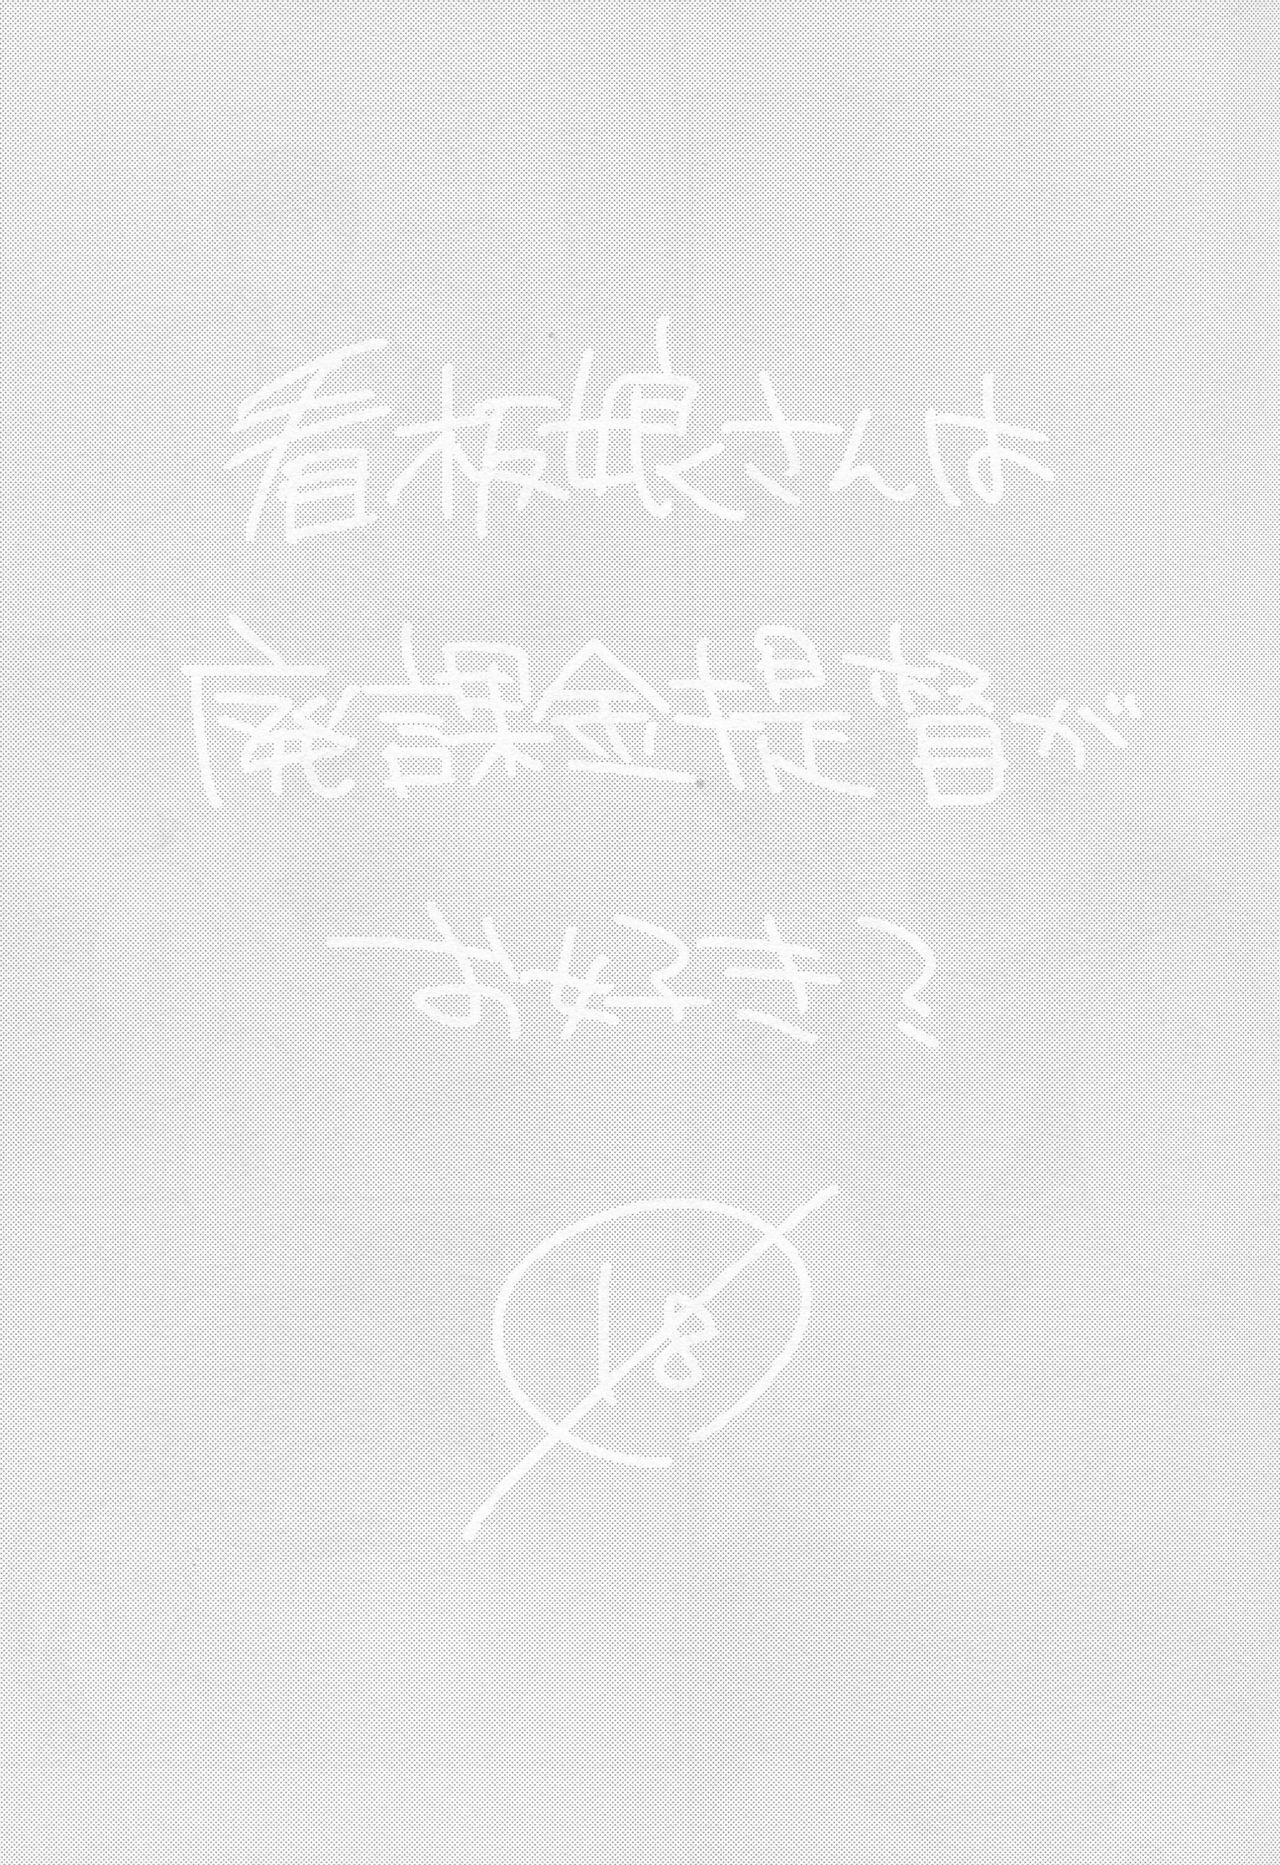 看板娘さんは
廃課金提督が
お好き?
18